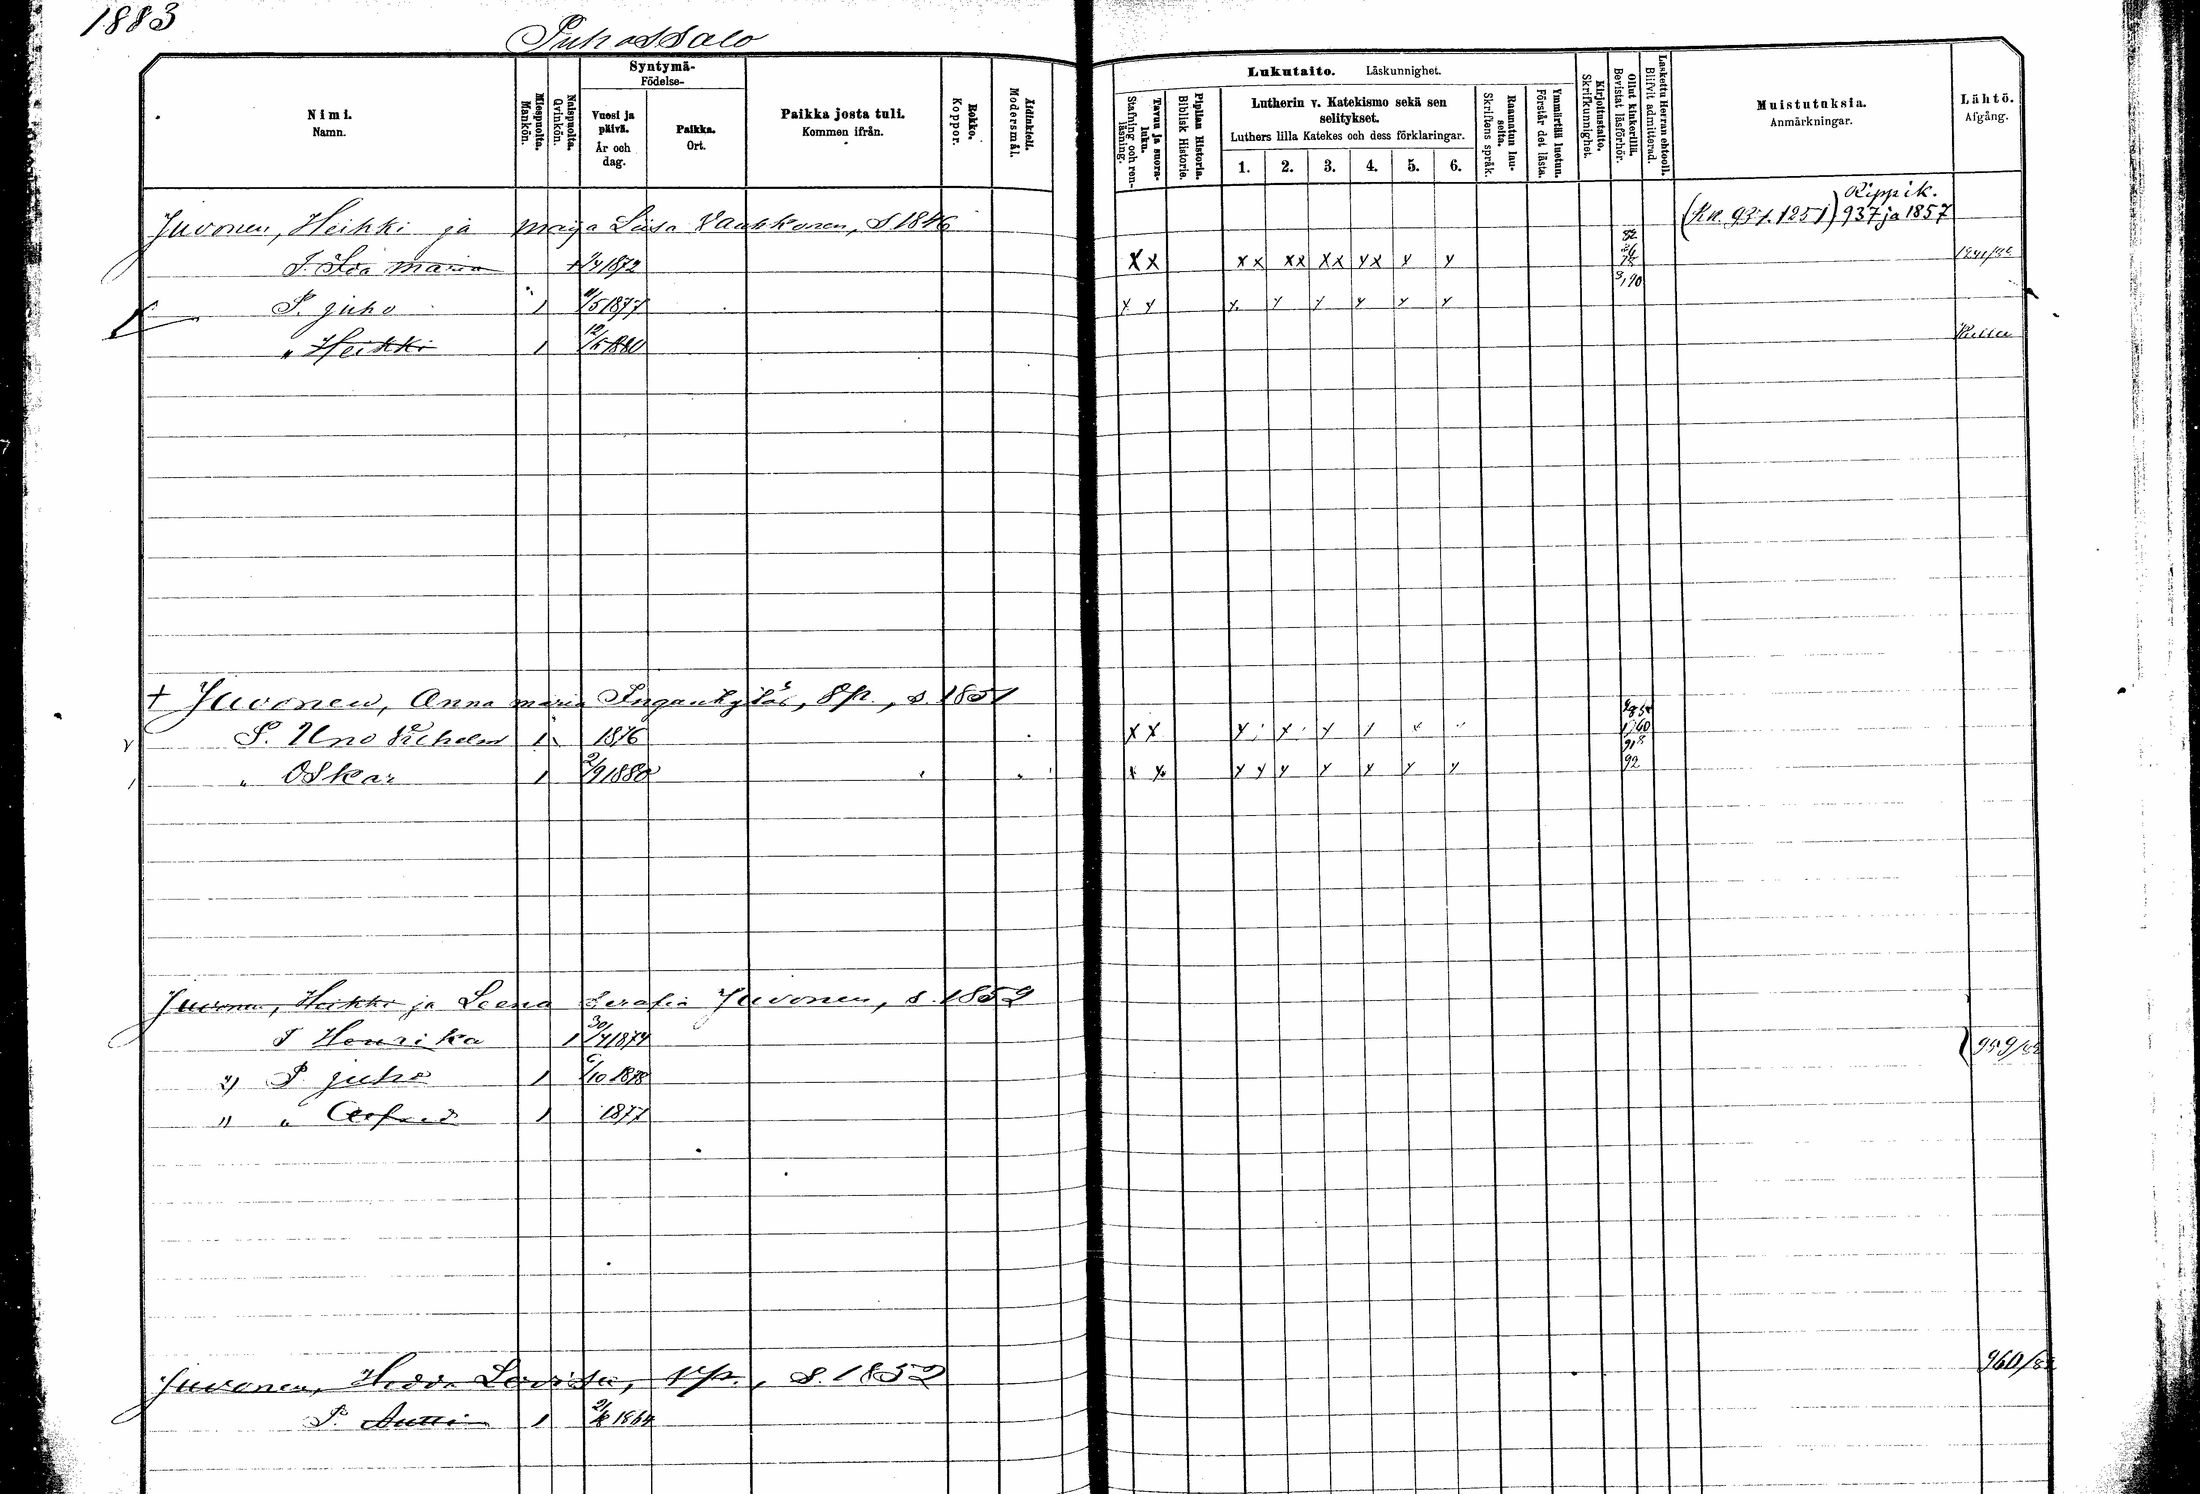 1883
Puhossalo
Nimi.
Namn.
Miespuolta.
Mankön.
Naispuolta.
Qvinkön.
Syntymä-
Födelse-
Vuosi ja päivä.
År och dag.
Paikka.
Ort.
Paikka josta tuli.
Kommen ifrån.
Rokko.
Koppor.
Äidinkieli.
Modersmål.
Lukutaito. Läskunnighet.
Tavuu ja suora-luku.
Stafning och ren-läsning.
Piplian Historia.
Biblisk Historie.
Lutherin v. Katekismo sekä sen selitykset.
Luthers lilla Katekes och dess förklaringar.
1. 2. 3. 4. 5. 6.
Raamatun lau-seita.
Skriftens språk.
Ymmärtää luetun.
Förstår det lästa.
Kirjoitustaito.
Skrifkunnighet.
Ollut kinkerillä.
Bevistat läsförhör.
Laskettu Herran ehtooll.
Blifvit admitterad.
Muistutuksia.
Anmärkningar.
Lähtö.
Afgång.
Juvonen, Heikki ja Maija Liisa Vauhkonen, S 1846
Rippik.
937 ja 1857
T. Ida Maria 1872 X X X X X X X X Y X Y Y
P. Juho 1 11/5 1877 Y Y Y Y Y Y Y Y
3,90
„ Heikki 1 12/5 1880
+ Juvonen, Anna Maria , s. 1851
P. Uno Vilhelm 1 1876 X X
„ Oskar 1 2/9 1880 92
Juvonen, Heikki ja Leena Serafia Juvonen, s. 1852
T Henrika 1 30/4 1874
P Juho 1 6/10 1878
„ 1 1877
Juvonen, Hedda Lovisa, , S. 1852 960/
P. Antti 1 1864